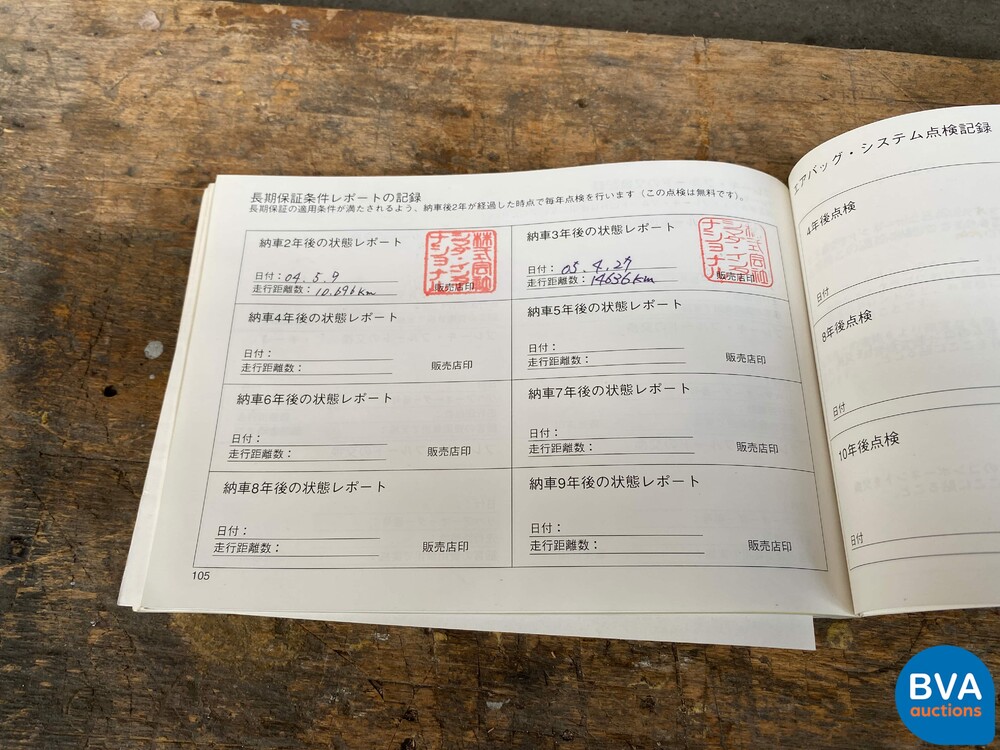 長期保証条件レポートの記録
長期保証の適用条件が満たされるよう、納車後2年が経過した時点で毎年点検を行います（この点検は無料です）。
納車2年後の状態レポート
株式会社
シンダ・インタ
ナショナル
日付：04.5.9
走行距離数：10.696km
販売店印
納車3年後の状態レポート
株式会社
ナショナル
日付：05.4.27
走行距離数：14636km
販売店印
納車4年後の状態レポート
日付：
走行距離数：
販売店印
納車5年後の状態レポート
日付：
走行距離数：
販売店印
納車6年後の状態レポート
日付：
走行距離数：
販売店印
納車7年後の状態レポート
日付：
走行距離数：
販売店印
納車8年後の状態レポート
日付：
走行距離数：
販売店印
納車9年後の状態レポート
日付：
走行距離数：
販売店印
105
エアバッグ・システム点検記録
4年後点検
日付
8年後点検
日付
10年後点検
日付
BVA
auctions